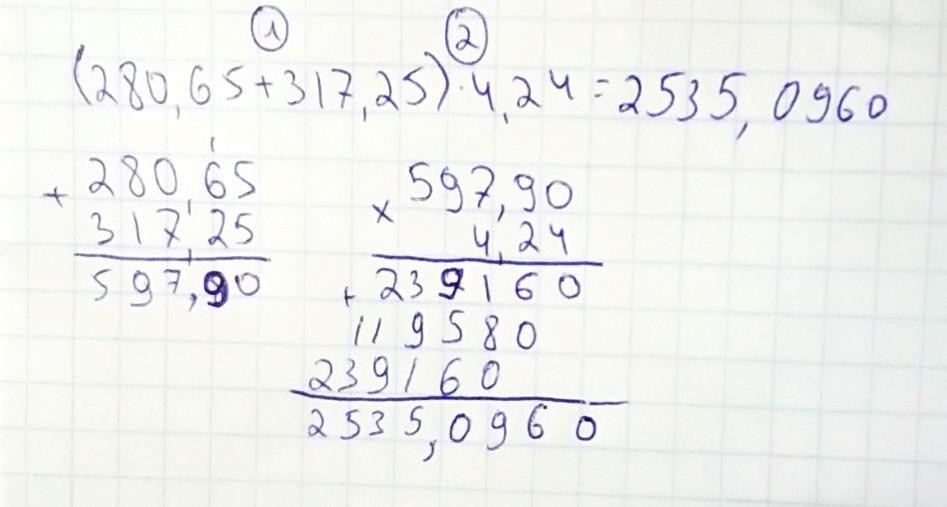 ① ②
(280,65+317,25)·4,24=2535,0960
1
+ 280,65
317,25
597,90
× 597,90
4,24
+ 239160
119580
239160
2535,0960